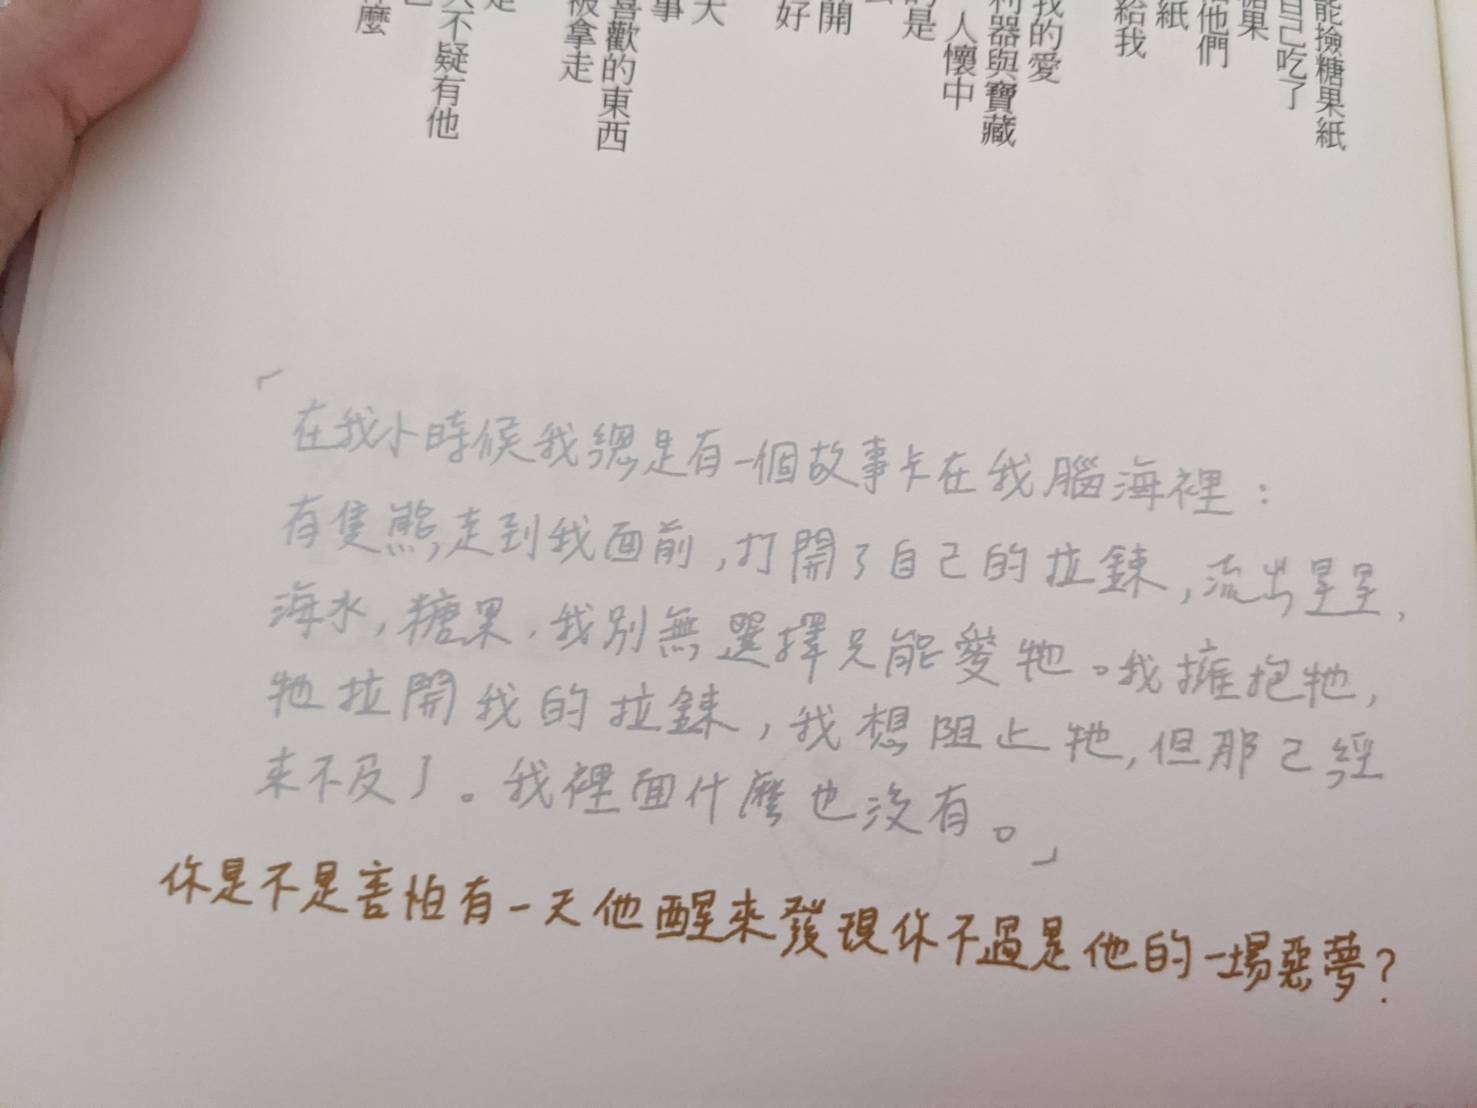 能撿糖果紙
自己吃了
糖果
他們
紙
給我
我的愛
利器與寶藏
人懷中
的是
開
好
大
事
喜歡的東西
被拿走
不疑有他
麼
「在我小時候我總是有一個故事卡在我腦海裡：
有隻熊走到我面前，打開了自己的拉鍊，流出星星，
海水，糖果，我別無選擇只能愛牠。我擁抱牠，
牠拉開我的拉鍊，我想阻止牠，但那已經
來不及了。我裡面什麼也沒有。」
你是不是害怕有一天他醒來發現你不過是他的一場惡夢？